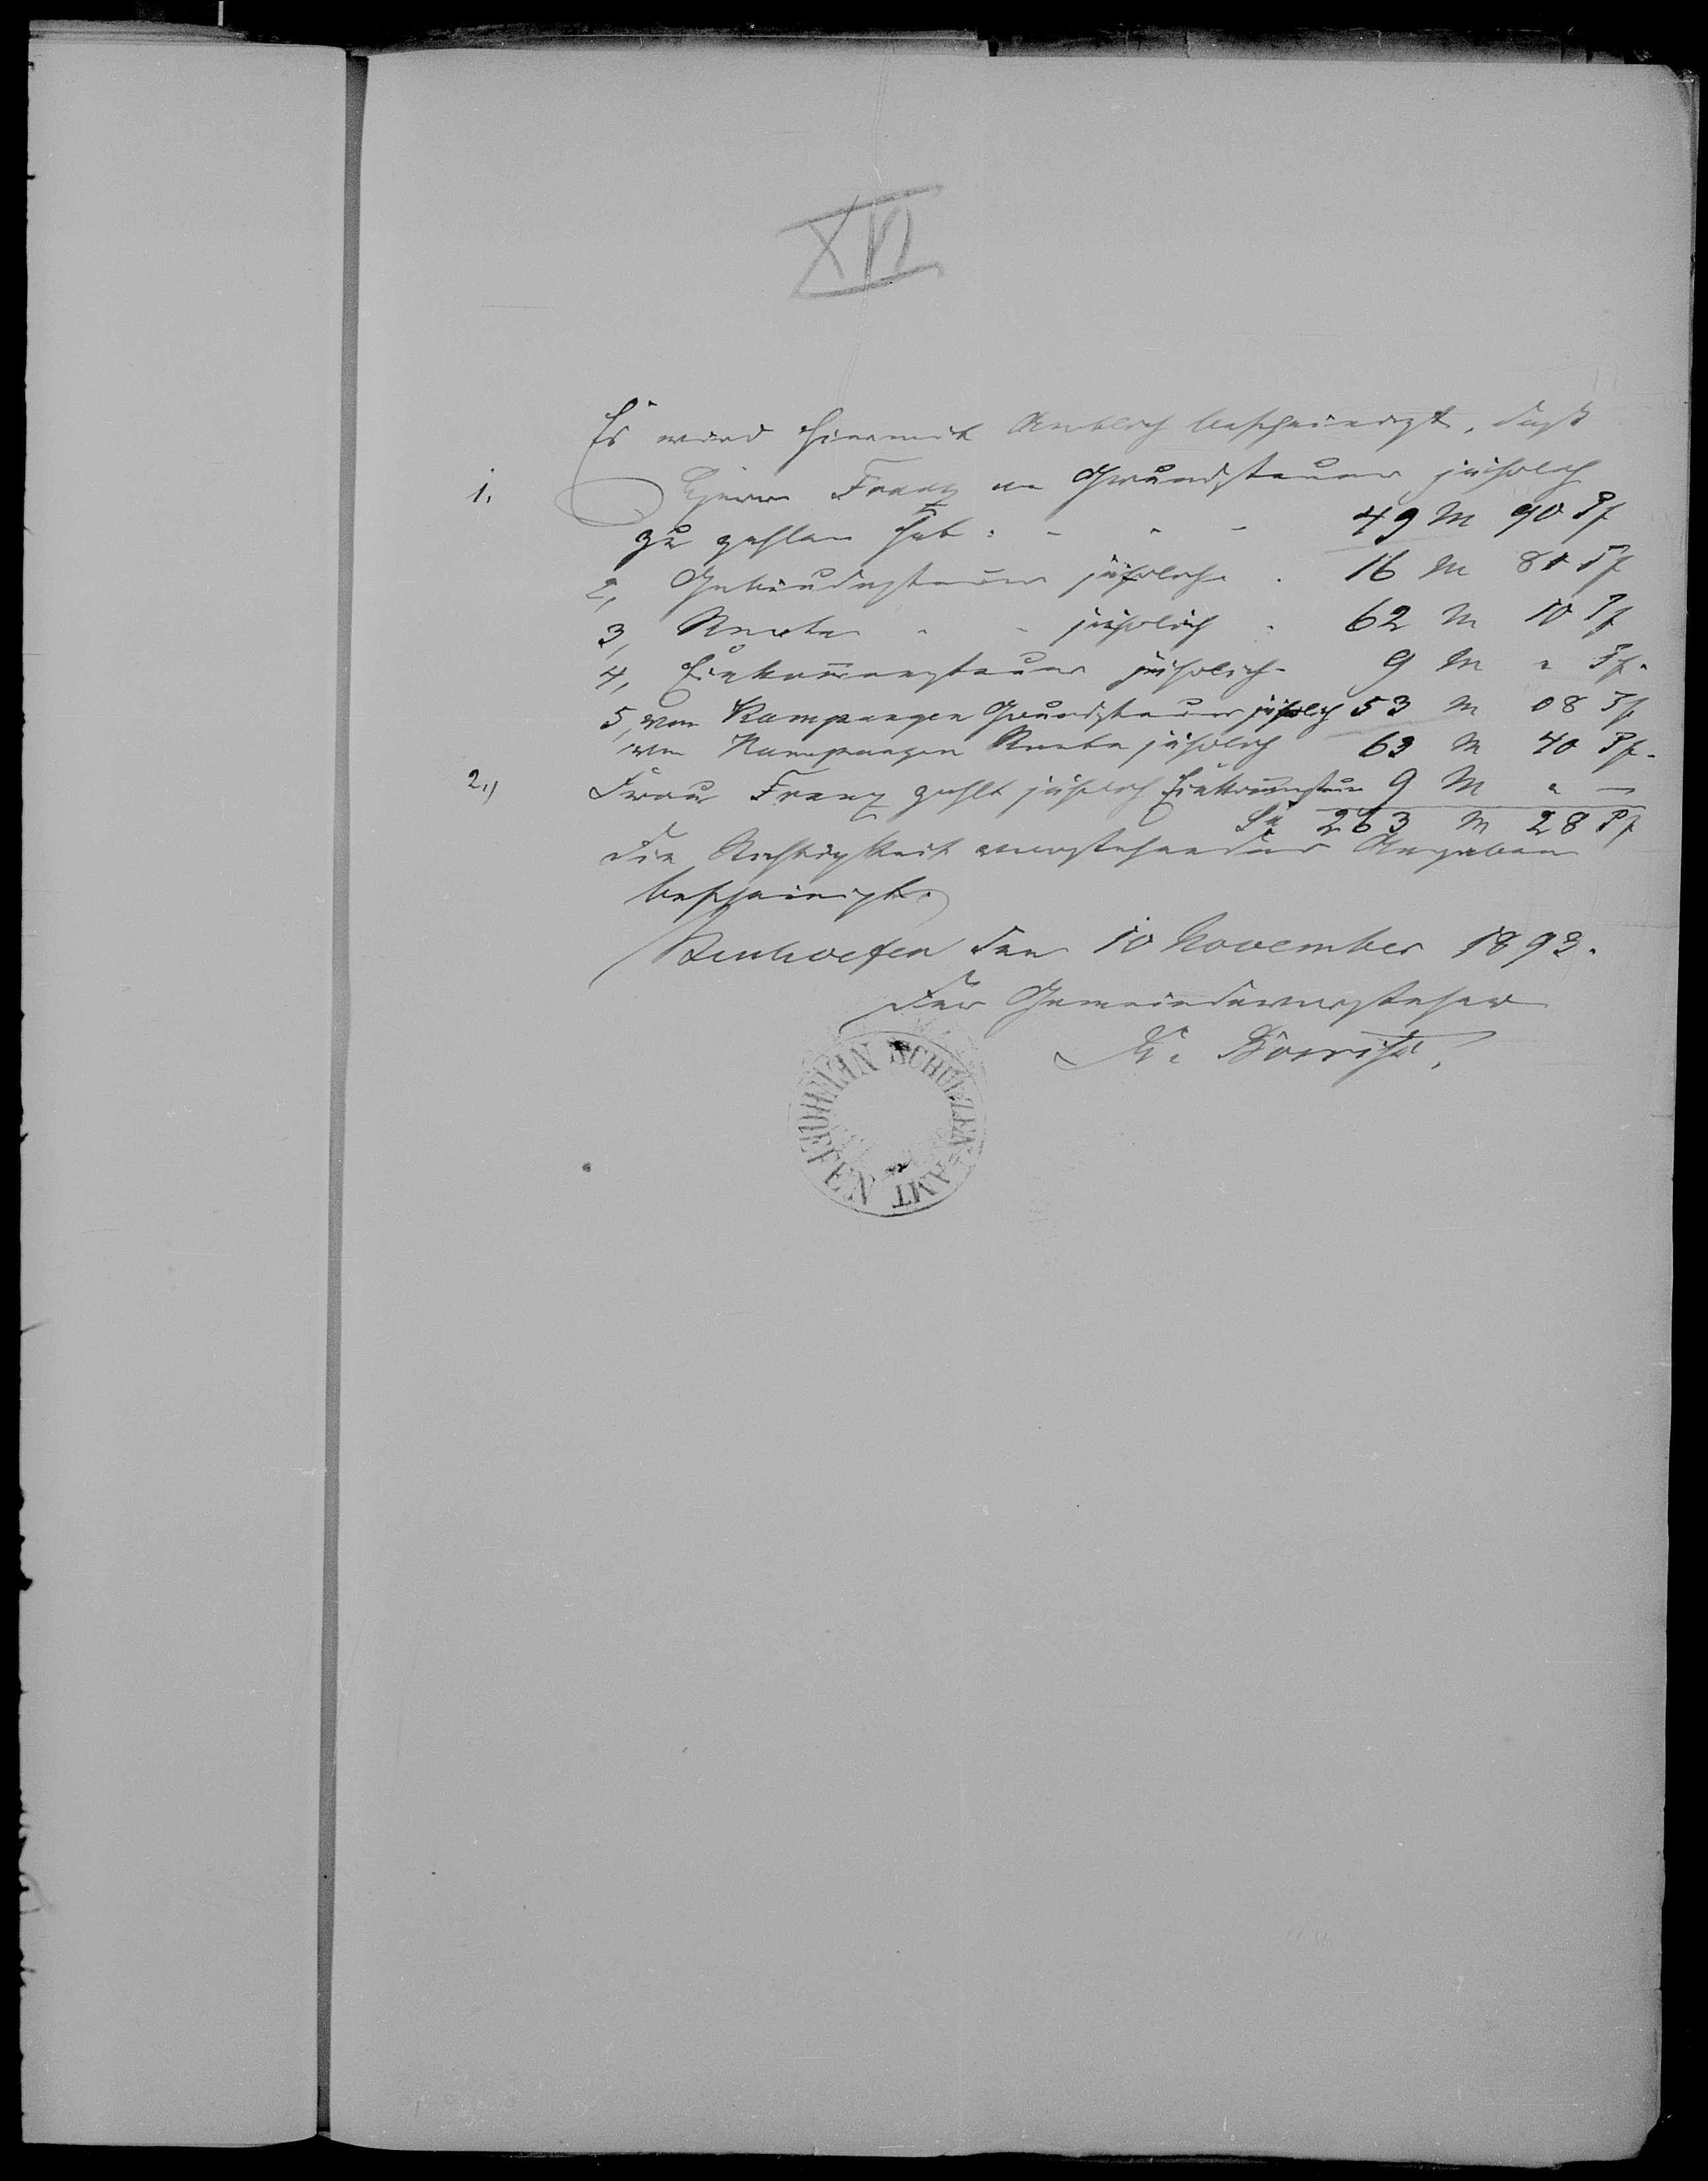 XVI
Es wird hiermit Amtlich bescheinigt, daß
1. Herr Franz an Grundsteuer jährlich
zu zahlen hat: - - - 49 M 90 Pf
2, Gebäudesteuer jährlich . 16 M 80 Pf
3, Rente - - jährlich . 62 M 10 Pf
4, Einkom̄ensteuer jährlich - 9 M " Pf.
5, von Kampangen Grundsteuer jährlich 53 M 08 Pf
von Kampangen Rente jährlich 63 M 40 Pf.
2,) Frau Franz zahlt jährlich Einkom̄ensteuer 9 M " —
Sa 263 M 28 Pf
Die Richtigkeit vorstehender Angaben
bescheinigt.
Neuhoefen den 10 November 1893.
Der Gemeindevorsteher
SCHULZEN-AMT NEUHOEFEN